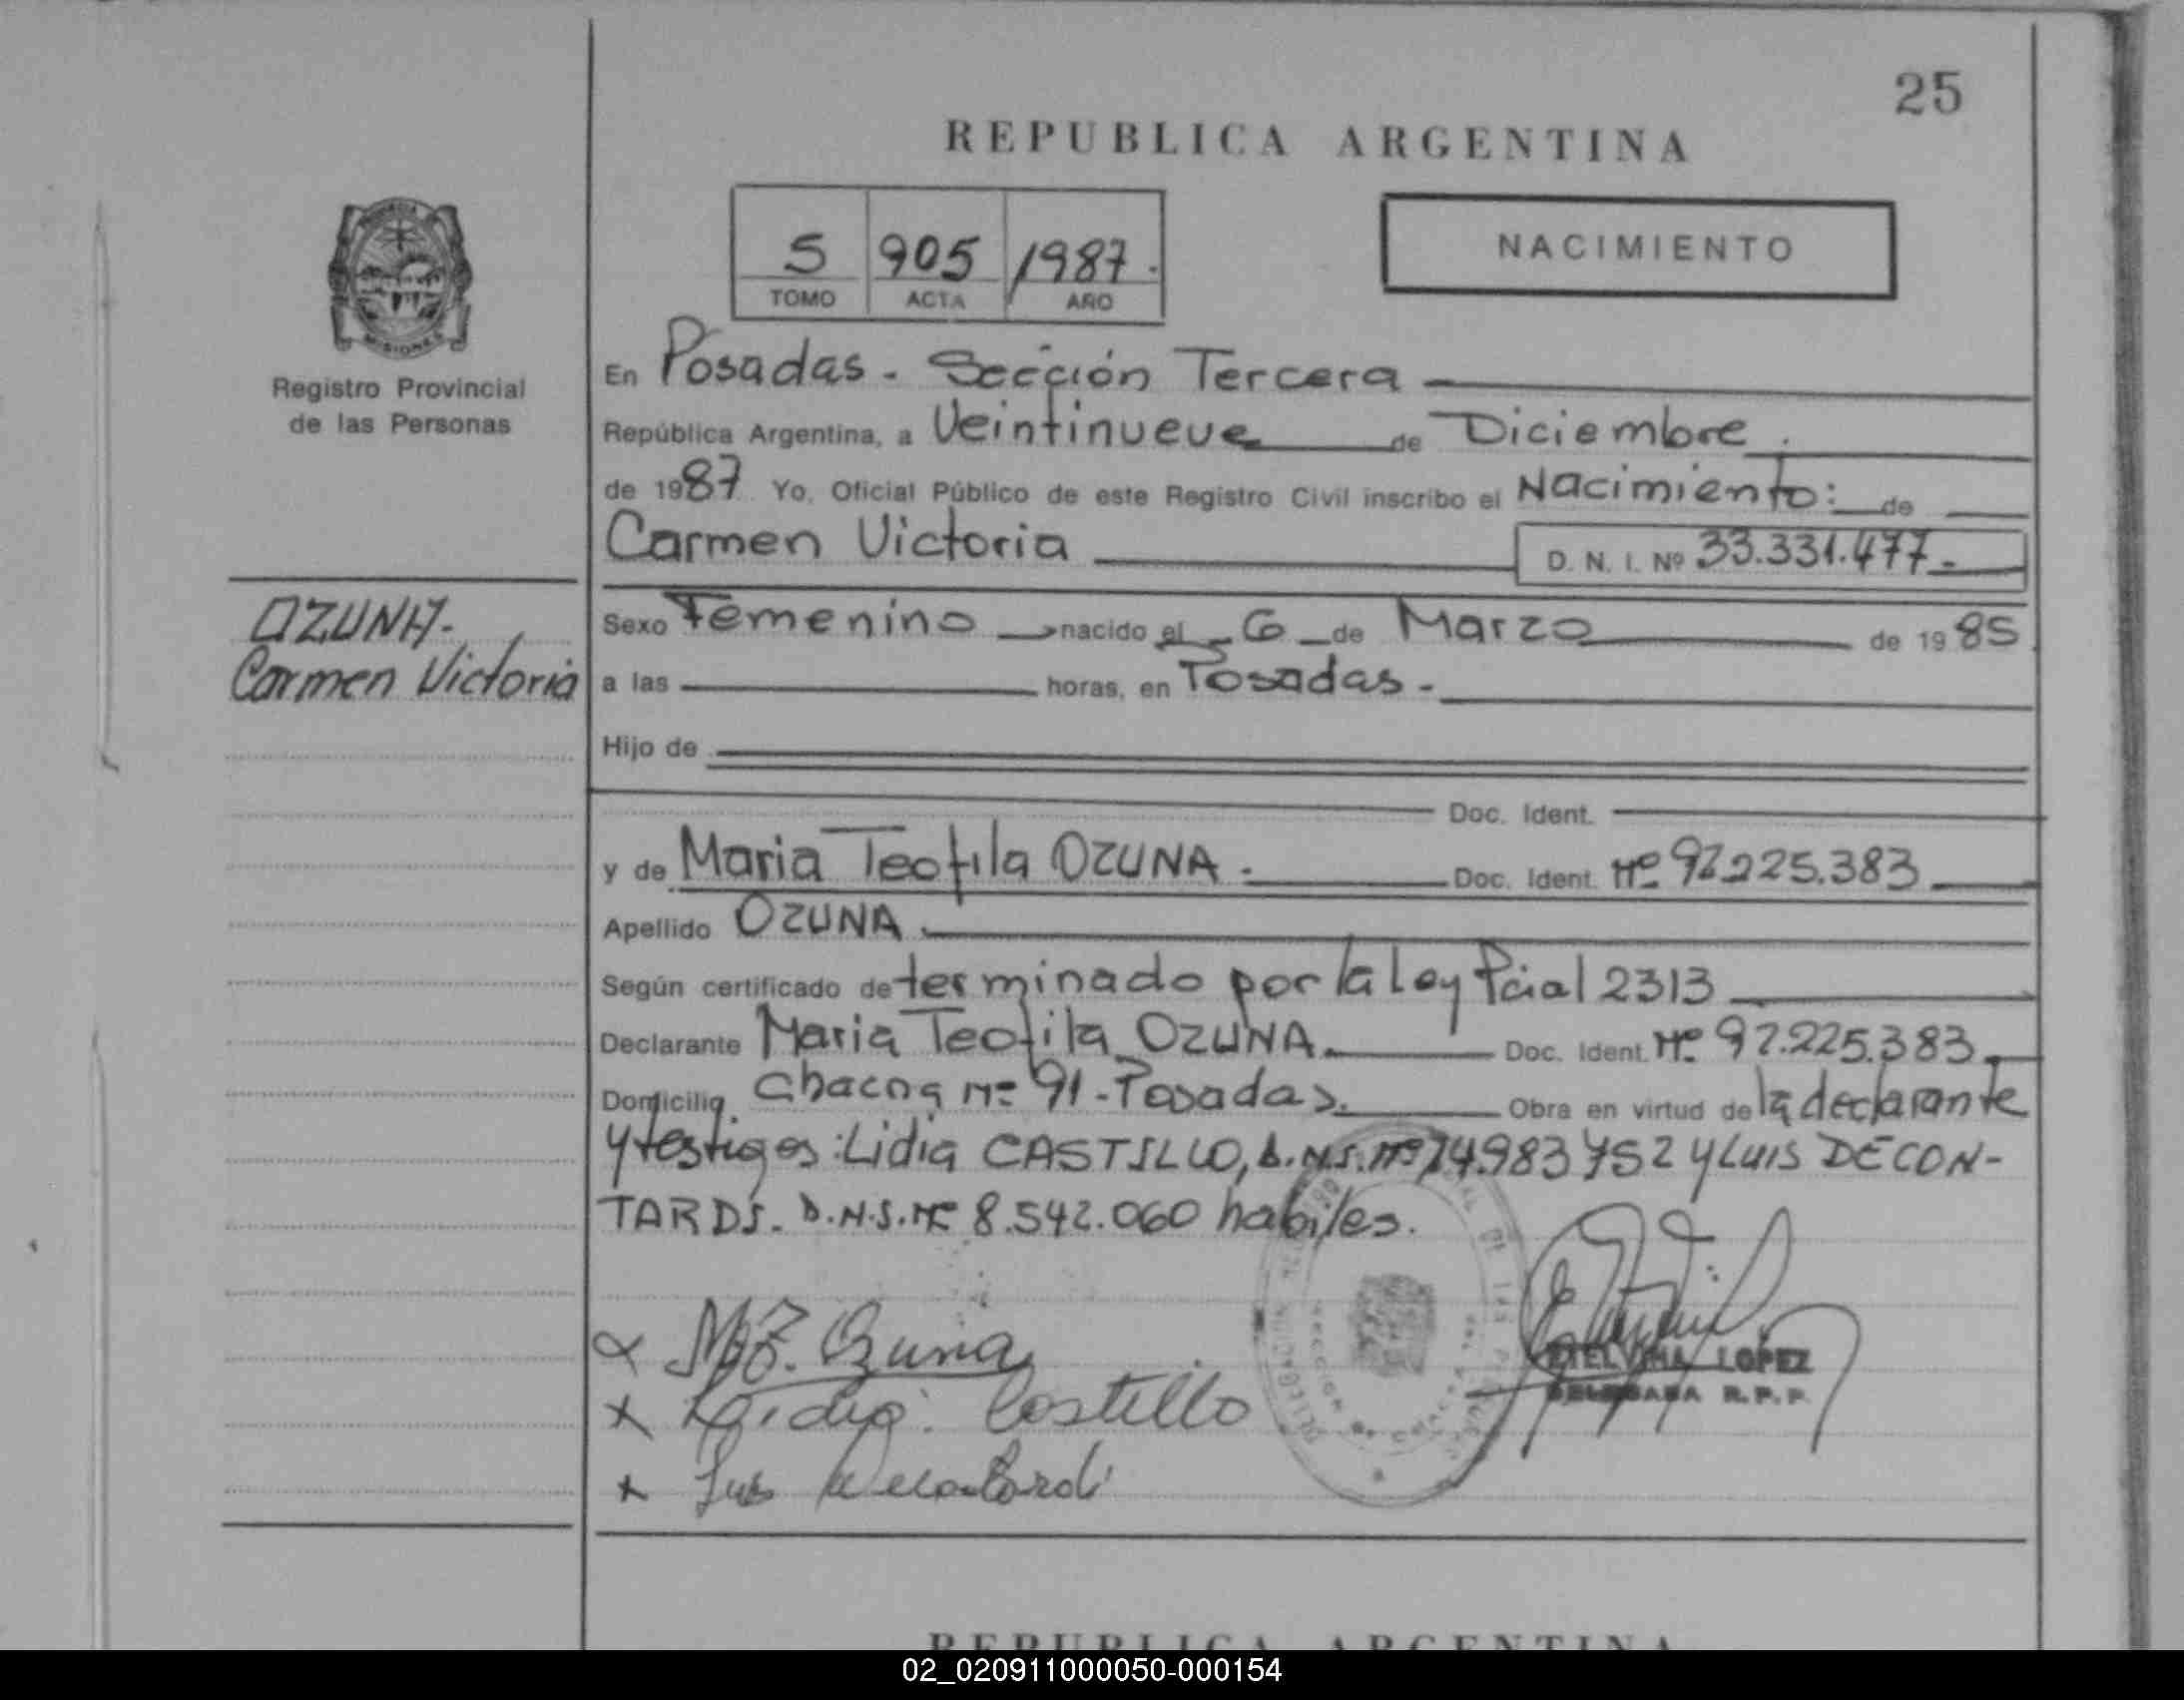 25
REPUBLICA ARGENTINA
5 905 1987.
TOMO ACTA AÑO
NACIMIENTO
MISIONES
Registro Provincial
de las Personas
OZUNA.
Carmen Victoria
En Posadas - Sección Tercera
República Argentina, a Veintinueve de Diciembre.
de 1987 Yo, Oficial Público de este Registro Civil inscribo el Nacimiento: de
Carmen Victoria D. N. I. Nº 33.331.477-
Sexo Femenino nacido el 6 de Marzo de 1985
a las horas, en Posadas -
Hijo de
Doc. Ident.
y de Maria Teofila OZUNA. Doc. Ident. Nº 92225.383
Apellido OZUNA.
Según certificado determinado por la ley Pcial 2313
Declarante Maria Teofila OZUNA. Doc. Ident. Nº 92.225.383
Domicilio Nº 91 - Posadas. Obra en virtud de la declarante
y testigos: Lidia CASTILLO, D.N.I. Nº 14.983752 y Luis DECON-
TARDI. D.N.I. Nº 8.542.060 habiles.
Ozuna
Lidia Castillo
Luis Decontardi
ETELVINA LOPEZ
DELEGADA R.P.P.
REPUBLICA ARGENTINA
02_020911000050-000154